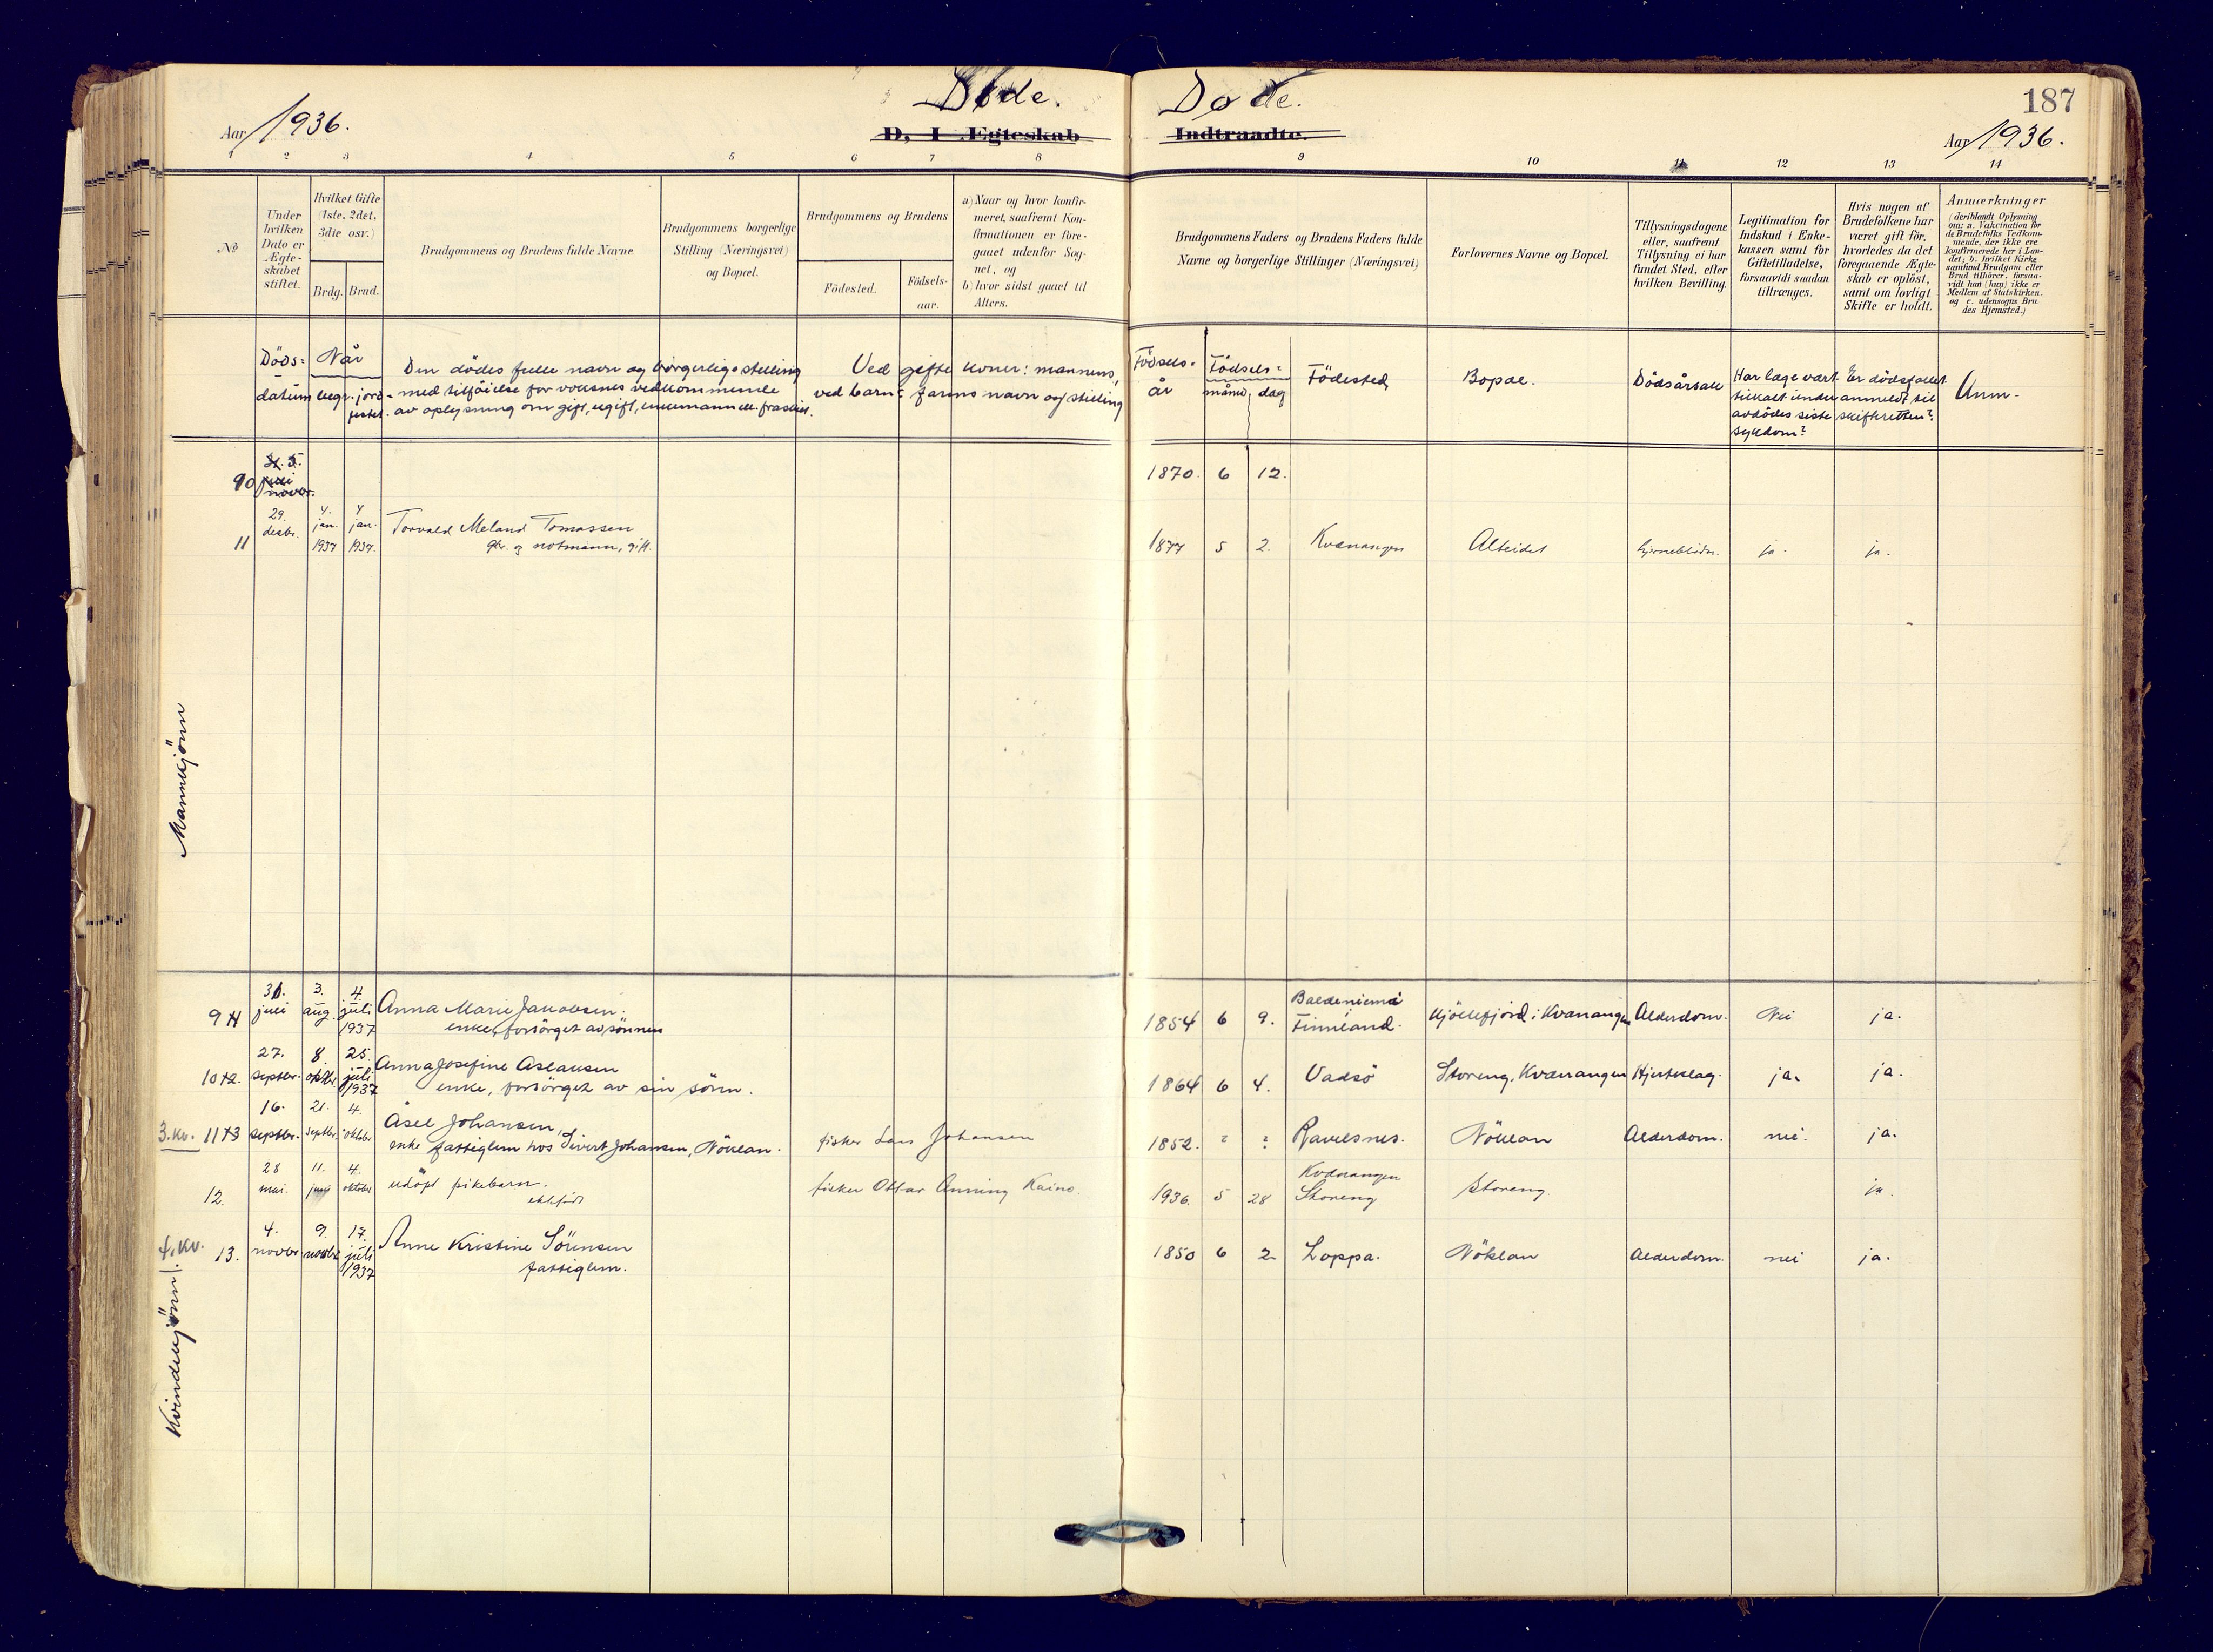 Døde.
Døde.
187
Aar 1936.
D, I Ægteskab
Indtraadte.
Aar 1936.
1 2 3 4 5 6 7 8 9 10 11 12 13 14
No
Under hvilken Dato er Ægte-skabet stiftet.
Hvilket Gifte (1ste, 2det, 3die osv.)
Brdg. Brud.
Brudgommens og Brudens fulde Navne
Brudgommens borgerlige Stilling (Næringsvei) og Bopæl.
Brudgommens og Brudens
Födested.
Födsels-aar.
a) Naar og hvor konfir-
meret, saafremt Kon-
firmationen er fore-
gaaet udenfor Sog-
net, og
b) hvor sidst gaaet til
Alters.
Brudgommens Faders og Brudens Faders fulde
Navne og borgerlige Stillinger (Næringsvei)
Forlovernes Navne og Bopæl.
Tillysningsdagene
eller, saafremt
Tillysning ei har
fundet Sted, efter
hvilken Bevilling.
Legitimation for
Indskud i Enke-
kassen samt for
Giftetilladelse,
forsaavidt saadan
tiltrænges.
Hvis nogen af
Brudefolkene har
været gift för,
hvorledes da det
foregaaende Ægte-
skab er oplöst,
samt om lovligt
Skifte er holdt.
Anmærkninger
(deriblandt Oplysning
om: a. Vakcination for
de Brudefolks Vedkom-
mende, der ikke ere
konfirmerede her i Lan-
det; b. hvilket Kirke-
samfund Brudgom eller
Brud tilhörer, forsaa-
vidt han (hun) ikke er
Medlem af Statskirken.
og c. udensogns Bru
des Hjemsted.)
Döds-
datum
Når
begr. jord-
festet.
Den dödes fulle navn og borgerlige stilling
med tilföielse for voksnes vedkommende
av oplysning om gift, ugift, enkemann ell. fraskilt.
Ved gifte koner: mannens,
ved barn: farens navn og stilling
Födsels-
år
Födsels-
måned, dag
Födested
Bopæl.
Dödsårsak
Har læge vært
tilkalt under
avdödes siste
sykdom?
Er dödsfallet
anmeldt til
skifteretten?
Anm.
Mannkjönn
10 5. novbr.
1870. 6 12.
11 29. desbr. 4. jan. 1937 4 jan. 1937.
Torvald Meland Tomassen
gbr. og notmann, gift.
1877 5 2. Kvænangen Alteidet hjerneblödn. ja. ja.
9 31. juli 3. aug. 4. juli 1937
Anna Marie Jakobsen.
enke, forsörget av sönnen
1854 6 9. Finnland. Kjökkefjord i Kvænangen Alderdom. Nei ja.
10 27. septbr. 8 oktbr. 25. juli 1937
Anna Josefine Aslaksen
enke, forsörget av sin sönn.
1864 6 4. Vadsö Storeng, Kvænangen Hjerteslag. ja. ja.
3. kv. 11 16. septbr. 21. septbr. 4. oktober
Åsel Johansen,
enke fattiglem hos Sivert Johansen, Nöklan.
fisker Lars Johansen
1852. ? ? Ravelsnes. Nöklan Alderdom. nei. ja.
12. 28 mai. 11. juni 4. oktober
udöpt pikebarn.
ektefödt
fisker Ottar Anning Kaino.
1936. 5 28 Kvænangen Storeng Storeng. ja.
4. kv. 13. 4. novbr. 9. novbr. 17. juli 1937
Anne Kristine Sörensen
fattiglem.
1850 6 2 Loppa. Nöklan Alderdom. nei ja.
Kvindekjönn